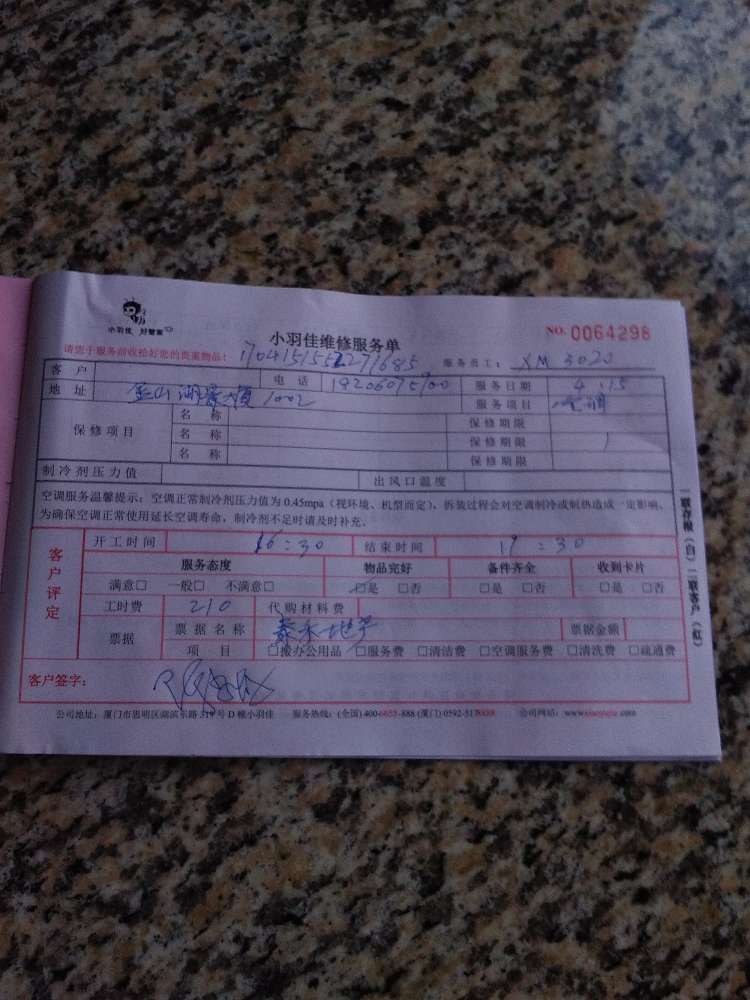 小羽佳 好管家
小羽佳维修服务单
NO. 0064298
请您于服务前收拾好您的贵重物品: 服务员工: XM 3020
客户 电话 服务日期 4.15
地址 金山湖景大厦 1002 服务项目 空调
保修项目 名称 保修期限
名称 保修期限
名称 保修期限
制冷剂压力值 出风口温度
空调服务温馨提示：空调正常制冷剂压力值为 0.45mpa（视环境、机型而定），拆装过程会对空调制冷或制热造成一定影响，
为确保空调正常使用延长空调寿命，制冷剂不足时请及时补充。
客户评定
开工时间 16:30 结束时间 17:30
服务态度 物品完好 备件齐全 收到卡片
满意□ 一般□ 不满意□ □是 □否 □是 □否 □是 □否
工时费 210 代购材料费
票据 票据名称 泰禾地产 票据金额
项目 □搬办公用品 □服务费 □清洁费 □空调服务费 □清洗费 □疏通费
客户签字：
公司地址：厦门市思明区湖滨东路 319 号 D 幢小羽佳 服务热线：(全国) 400-6655-888 (厦门) 0592-5178888 公司网站：
一联存根（白） 二联客户（红）